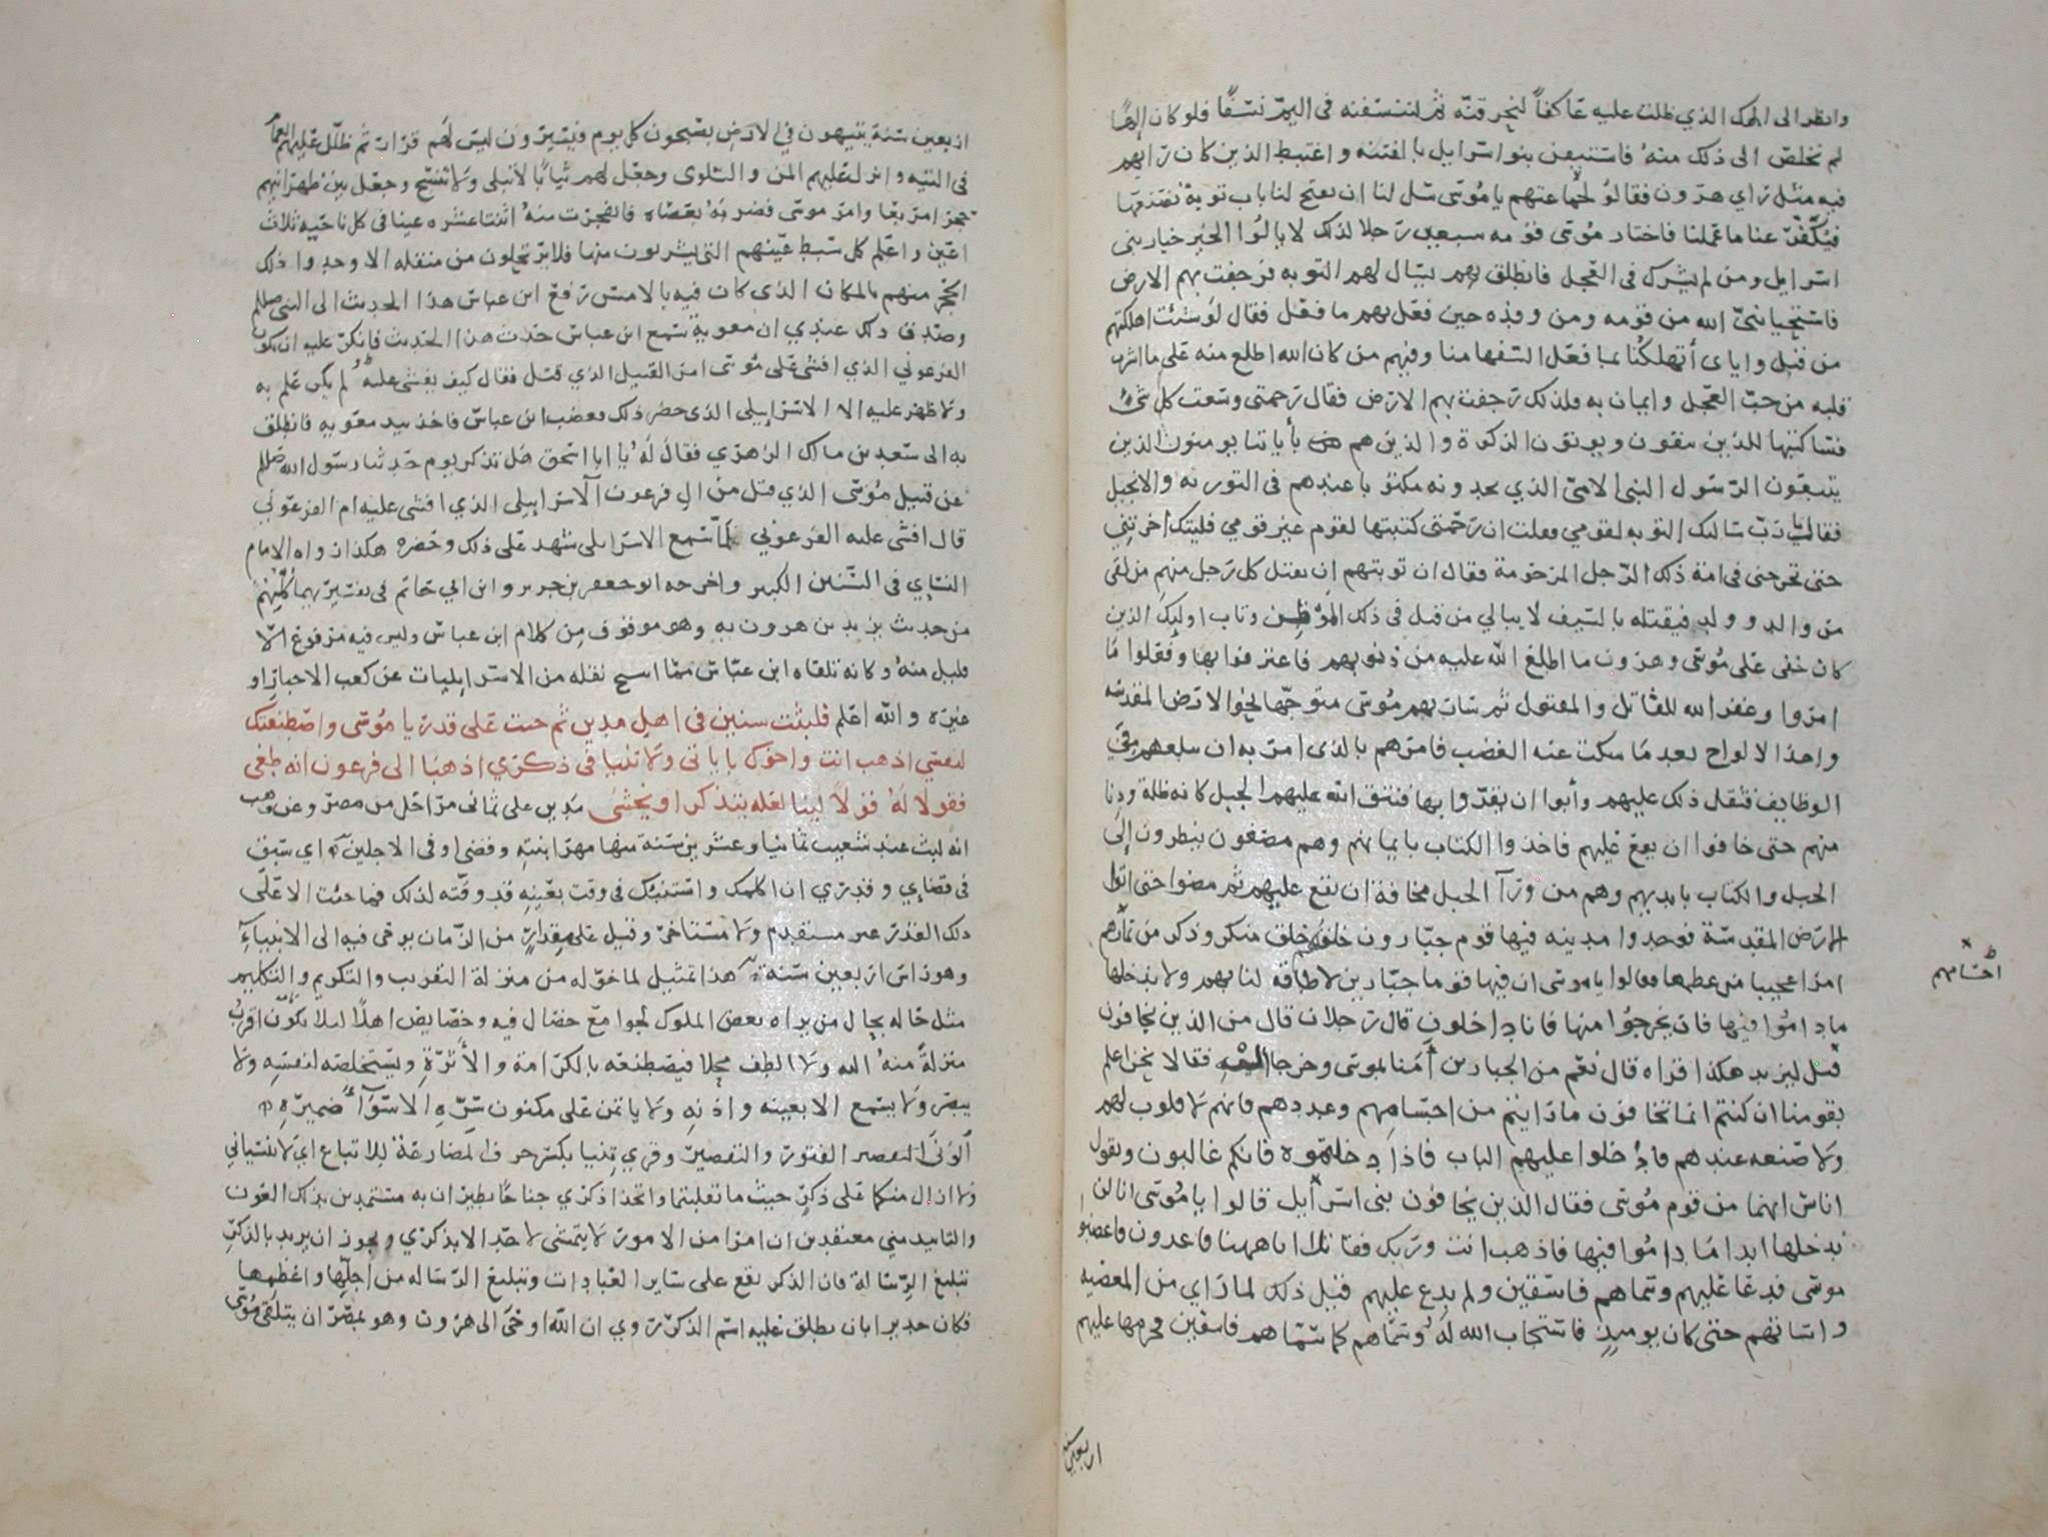 وانظر الى الهك الذي ظلت عليه عاكفاً لنحرقنه ثم لننسفنه فى اليم نسفًا فلو كان الهًا
لم نخلص الى ذلك منه فاستيقن بنو اسرايل بالفتنه واغتبط الذين كان رايهم
فيه مثل راي هرون فقالوا لجماعتهم يا موسى سل لنا ان يفتح لنا باب توبة نصنعها
فيكفّر عنا ما عملنا فاختار موسى قومه سبعين رجلا لذلك لا يالوا الخير خيار بنى
اسرايل ومن لم يشرك فى العجل فانطلق بهم يسال لهم التوبه فرجفت بهم الارض
فاستحيا نبىّ الله من قومه ومن وفده حين فعل بهم ما فعل فقال لو شئت اهلكتهم
من قبل واياى أتهلكنا بما فعل السفها منا وفيهم من كان الله اطلع منه على ما اشرب
قلبه من حب العجل وايمان به فلذلك رجفت بهم الارض فقال رحمتى وسعت كل شئ
فساكتبها للذين يتقون ويوتون الزكوة والذين هم بأياتنا يومنون الذين
يتبعون الرسول النبى الامىّ الذي يجدونه مكتوبا عندهم فى التوريه والانجيل
فقال رب سالتك التوبه لقومي فقلت ان رحمتى كتبتها لقوم غير قومي فليتك اخرتني
حتى تخرجنى فى امة ذلك الرجل المرحومة فقال ان توبتهم ان يقتل كل رجل منهم من لقى
من والد وولد فيقتله بالسيف لا يبالي من قتل فى ذلك الموطن وتاب اوليك الذين
كان خفى على موسى وهرون ما اطلع الله عليه من ذنوبهم فاعترفوا بها وفعلوا ما
امروا وغفر الله للقاتل والمقتول ثم سار بهم موسى متوجها نحو الارض المقدسه
واخذ الالواح بعد ما سكت عنه الغضب فامرهم بالذى امر به ان يبلغهم من
الوظايف فثقل ذلك عليهم وأبوا ان يقرّوا بها فنتق الله عليهم الجبل كانه ظلة ودنا
منهم حتى خافوا ان يقع عليهم فاخذوا الكتاب بايمانهم وهم مصغون ينظرون الى
الجبل والكتاب بايديهم وهم من ورآ الجبل مخافة ان يقع عليهم ثم مضوا حتى اتوا
الارض المقدسة فوجدوا مدينه فيها قوم جبّارون خلقهم خلق منكر وذكر من ثمارهم
امرا عجيبا من عظمها فقالوا يا موسى ان فيها قوما جبّارين لا طاقة لنا بهم ولا ندخلها
ما داموا فيها فان يخرجوا منها فانا داخلون قال رجلان قال من الذين يخافون
قيل ليزيد هكذا قراه قال نعم من الجبارين أمنا بموسى وخرجا اليه فقالا نحن اعلم
بقومنا ان كنتم انما تخافون ما رايتم من اجسامهم وعددهم فانهم لا قلوب لهم
ولا منعه عندهم فادخلوا عليهم الباب فاذا دخلتموه فانكم غالبون ويقول
اناس انهما من قوم موسى فقال الذين يخافون بنى اسرآيل قالوا يا موسى انا لن
ندخلها ابدا ما داموا فيها فاذهب انت وربك فقاتلا انا ههنا قاعدون فاغضبوا
موسى فدعا عليهم وسماهم فاسقين ولم يدع عليهم قبل ذلك لما راي من المعصيه
واساتهم حتى كان يوميذٍ فاستجاب الله له وسمّاهم كما سمّاهم فاسقين فحرمها عليهم
اجسامهم
اربعين سنه
اربعين سنة يتيهون في الارض يصبحون كل يوم فيسيرون ليس لهم قرار ثم ظلّل عليهم الغمام
فى التيه وانزل عليهم المن والسلوى وجعل لهم ثيابًا لا تبلى ولا تتسخ وجعل بين ظهرانيهم
حجرا مربعا وامر موسى فضربه بعصاه فانفجرت منه اثنتا عشره عينا فى كل ناحيه ثلاث
اعين واعلم كل سبط عينهم التى يشربون منها فلا يرتحلون من منقله الا وجدوا ذلك
الحجر منهم بالمكان الذى كان فيه بالامس رفع ابن عباس هذا الحديث الى النبى صلعم
وصدق ذلك عندي ان معوية سمع ابن عباس حدث هذا الحديث فانكر عليه ان يكون
الفرعوني الذي افشى على موسى امر القتيل الذي قتل فقال كيف يفشى عليه ولم يكن علم به
ولا ظهر عليه الا الاسرايلى الذى حضر ذلك فغضب ابن عباس فاخذ بيد معويه فانطلق
به الى سعد بن مالك الزهري فقال له يا ابا اسحق هل تذكر يوم حدثنا رسول الله صلعم
عن قتيل موسى الذي قتل من ال فرعون الاسرايلى الذي افشى عليه ام الفرعوني
قال افشى عليه الفرعوني بما سمع الاسرايلى شهد على ذلك وحضره هكذا رواه الامام
النساي فى السنن الكبير واخرجه ابو جعفر بن جرير وابن ابي حاتم فى تفسيريهما كلهم
من حديث يزيد بن هرون به وهو موقوف من كلام ابن عباس وليس فيه مرفوع الّا
قليل منه وكانه تلقاه ابن عباس مما ابيح نقله من الاسرايليات عن كعب الاحبار او
غيره والله اعلم فلبثت سنين فى اهل مدين ثم جئت على قدر يا موسى واصطنعتك
لنفسي اذهب انت واخوك باياتى ولا تنيا في ذكري اذهبا الى فرعون انه طغى
فقولا له قولا لينا لعله يتذكر او يخشى مدين على ثمانى مراحل من مصر وعن وهب
انه لبث عند شعيب ثمانيا وعشرين سنة منها مهر ابنته وقضى اوفى الاجلين اي سبق
فى قضاءي وقدري ان اكلمك واستنبئك فى وقت بعينه قد وقته لذلك فما جئت الا على
ذلك القدر غير مستقدم ولا مستاخر وقيل على مقدارٍ من الزمان يوحى فيه الى الانبيآء
وهو راس اربعين سنة هذا تمثيل لما خوّله من منزلة التقريب والتكريم والتكليم
مثل حاله بحال من يراه بعض الملوك لجوامع خصال فيه وخصايص اهلًا ليلا يكون اقرب
منزلة منه اليه ولا الطف محلا فيصطنعه بالكرامة والأثرة ويستخلصه لنفسه ولا
يبصر ولا يسمع الا بعينه واذنه ولا ياتمن على مكنون سره الا سوآء ضميره
الونى التقصير الفتور والتقصير وقرى تنيا بكسر حرف المضارعة للاتباع اي لا تنسياني
ولا ازال منكما على ذكر حيث ما تقلبتما واتخذا ذكري جناحًا تطيران به مستمدين بذلك العون
والتاييد مني معتقدين ان امرا من الامور لا يتمشى لاحد الا بذكري ويجوز ان يريد بالذكر
تبليغ الرسالة فان الذكر يقع على ساير العبادات وتبليغ الرساله من اجلّها واعظمها
فكان جديرا بان يطلق عليه اسم الذكر روي ان الله اوحى الى هرون وهو بمصر ان يتلقى موسى